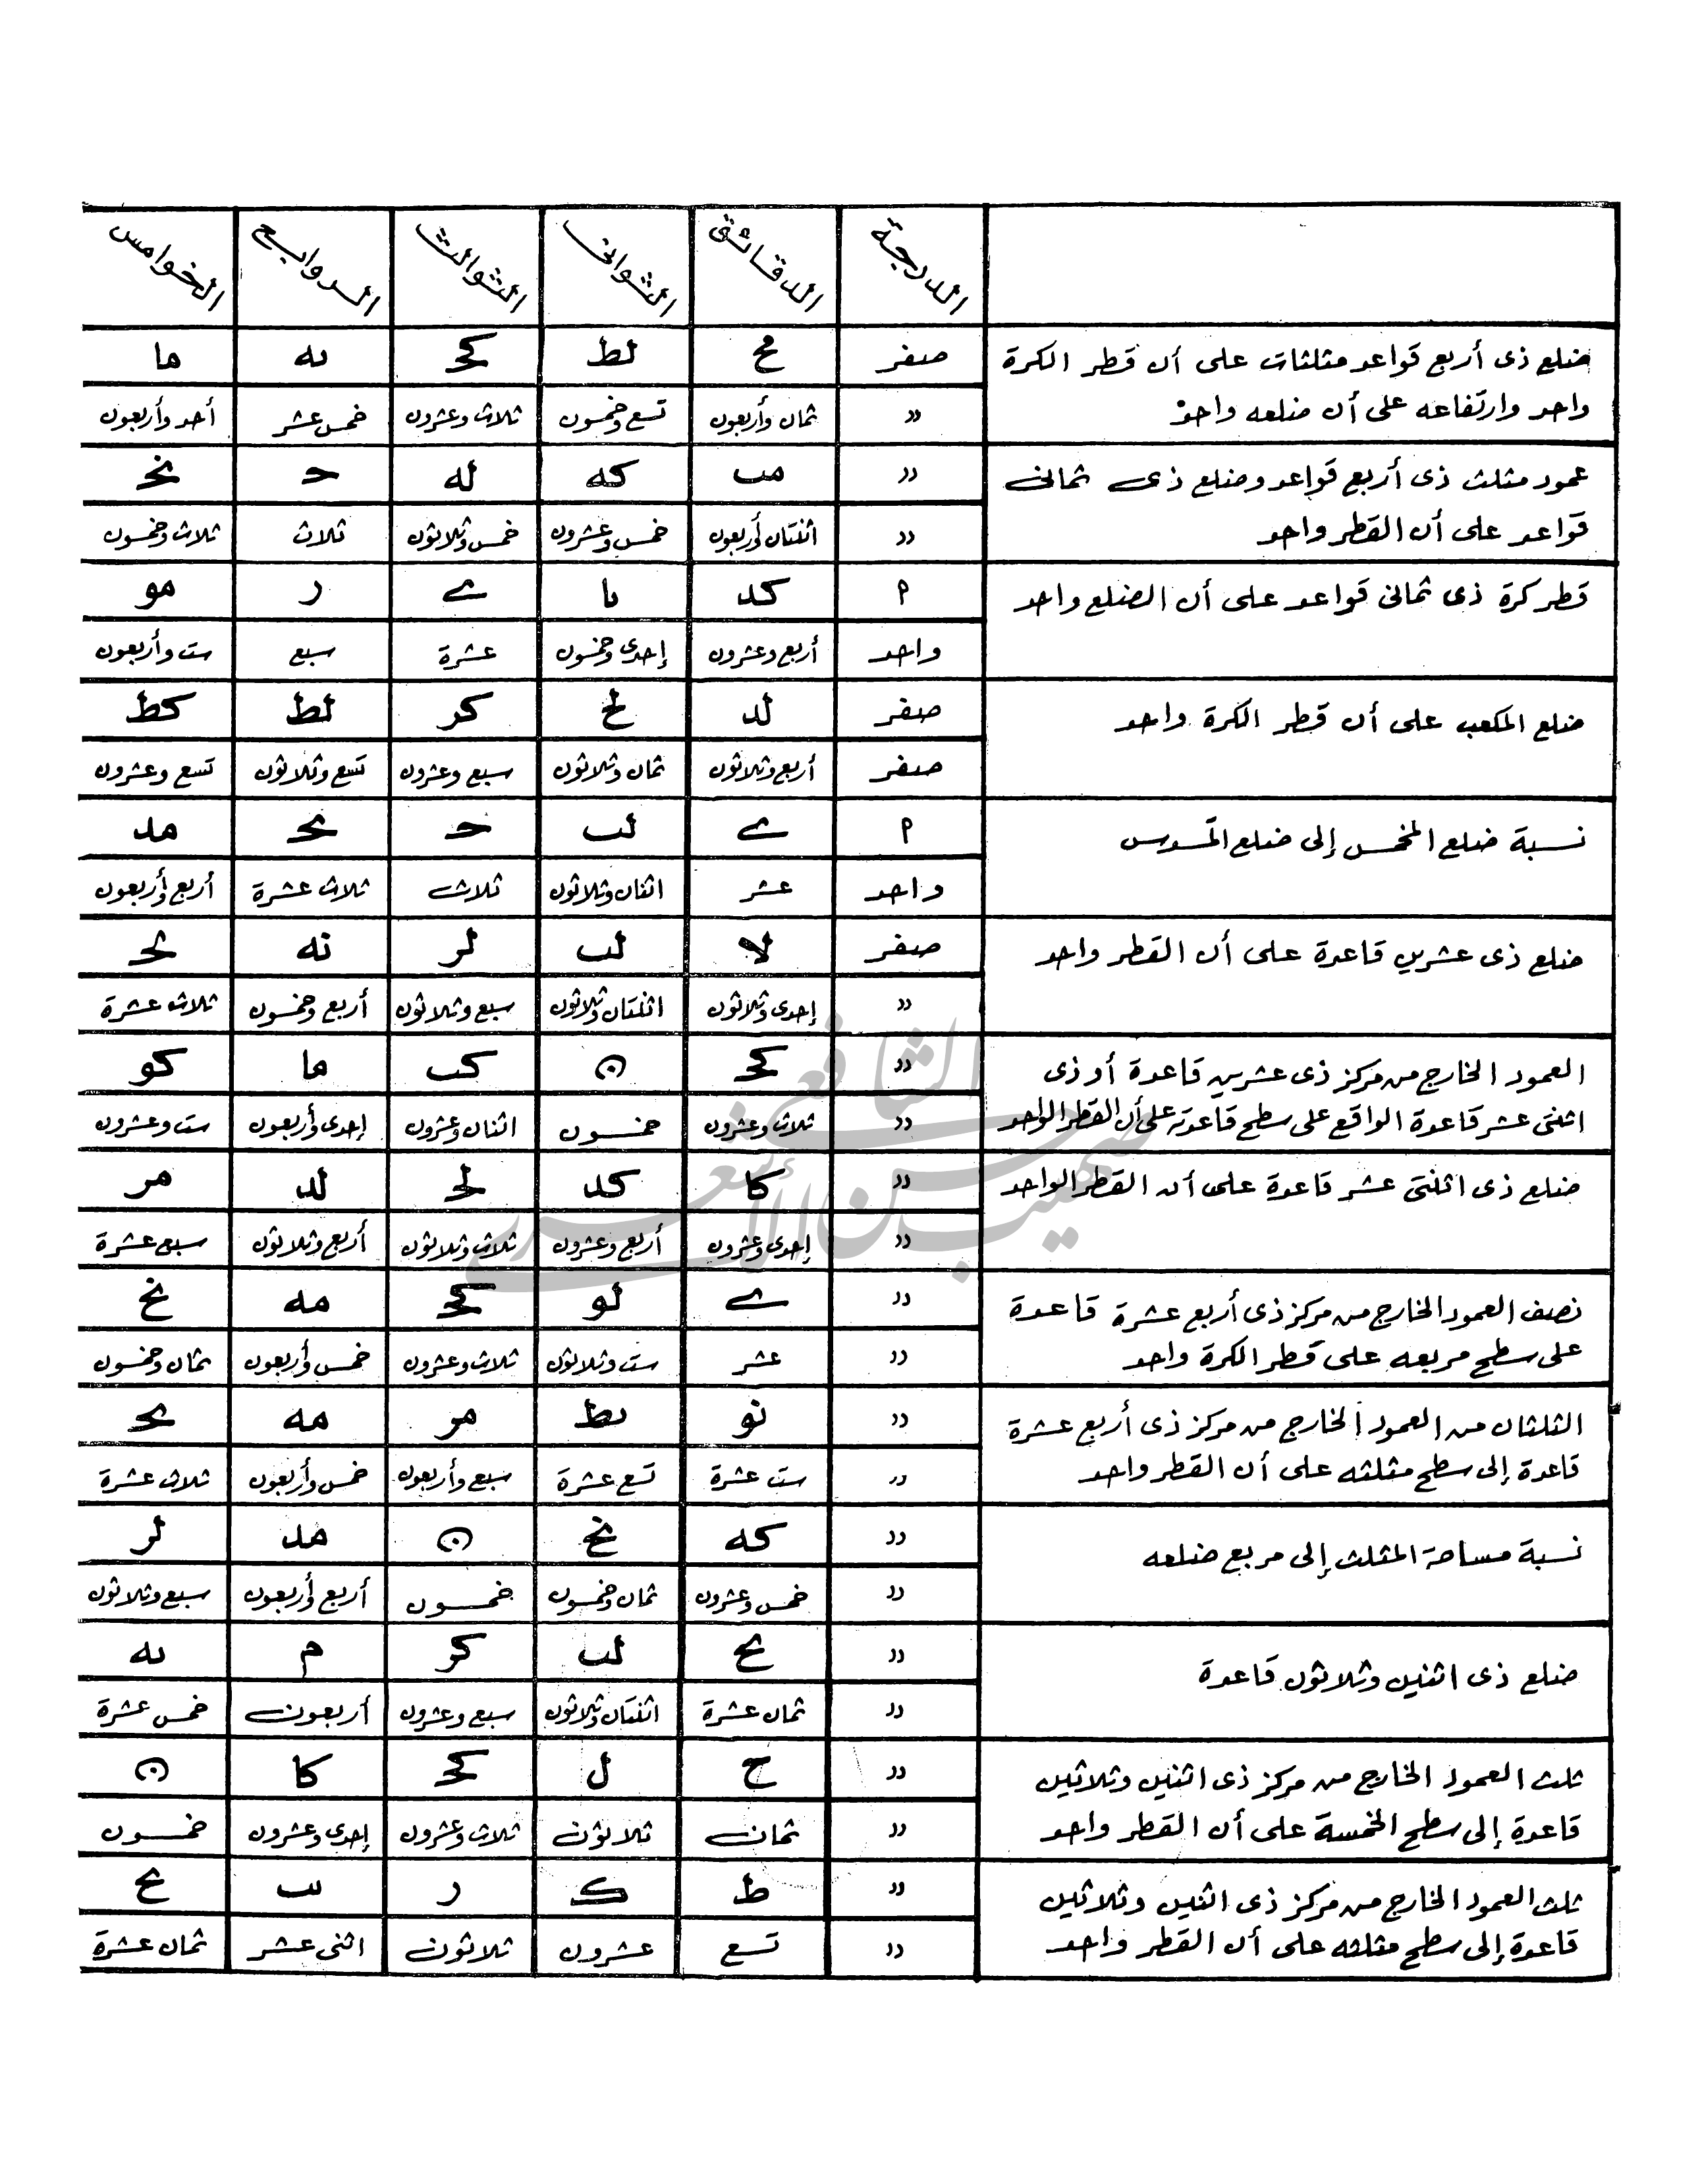 الدرجة الدقائق الثوانى الثوالث الروابع الخوامس
ضلع ذى أربع قواعد مثلثات على أن قطر الكرة
واحد وارتفاعه على أن ضلعه واحد
صفر مح لط كح ىه ما
" ثمان وأربعون تسع وخمسون ثلاث وعشرون خمس عشر أحد وأربعون
عمود مثلث ذى أربع قواعد وضلع ذى ثمانى
قواعد على أن القطر واحد
" مب كه له حـ نحـ
" اثنتان وأربعون خمس وعشرون خمس وثلاثون ثلاث ثلاث وخمسون
قطر كرة ذى ثمانى قواعد على أن الضلع واحد
ا كد نا ى ر مو
واحد أربع وعشرون إحدى وخمسون عشرة سبع ست وأربعون
ضلع المكعب على أن قطر الكرة واحد
صفر لد لح كر لط كط
صفر أربع وثلاثون ثمان وثلاثون سبع وعشرون تسع وثلاثون تسع وعشرون
نسبة ضلع المخمس إلى ضلع المسدس
ا ى لب حـ يحـ مد
واحد عشر اثنان وثلاثون ثلاث ثلاث عشرة أربع وأربعون
ضلع ذى عشرين قاعدة على أن القطر واحد
صفر لا لب لر نه يحـ
" إحدى وثلاثون اثنتان وثلاثون سبع وثلاثون أربع وخمسون ثلاث عشرة
العمود الخارج من مركز ذى عشرين قاعدة أو ذى
اثنتى عشر قاعدة الواقع على سطح قاعدته على أن القطر الواحد
" كحـ ن كب ما كو
" ثلاث وعشرون خمسون اثنان وعشرون إحدى وأربعون ست وعشرون
ضلع ذى اثنتى عشر قاعدة على أن القطر الواحد
" كا كد لحـ لد مر
" إحدى وعشرون أربع وعشرون ثلاث وثلاثون أربع وثلاثون سبع عشرة
نصف العمود الخارج من مركز ذى أربع عشرة قاعدة
على سطح مربعه على قطر الكرة واحد
" ى لو كحـ مه نح
" عشر ست وثلاثون ثلاث وعشرون خمس وأربعون ثمان وخمسون
الثلثان من العمود الخارج من مركز ذى أربع عشرة
قاعدة إلى سطح مثلثه على أن القطر واحد
" نو يط مر مه يحـ
" ست عشرة تسع عشرة سبع وأربعون خمس وأربعون ثلاث عشرة
نسبة مساحة المثلث إلى مربع ضلعه
" كه نح ن مد لر
" خمس وعشرون ثمان وخمسون خمسون أربع وأربعون سبع وثلاثون
ضلع ذى اثنين وثلاثون قاعدة
" يح لب كر م ىه
" ثمان عشرة اثنتان وثلاثون سبع وعشرون أربعون خمس عشرة
ثلث العمود الخارج من مركز ذى اثنين وثلاثين
قاعدة إلى سطح الخمسة على أن القطر واحد
" ح ل كحـ كا ن
" ثمان ثلاثون ثلاث وعشرون إحدى وعشرون خمسون
ثلث العمود الخارج من مركز ذى اثنين وثلاثين
قاعدة إلى سطح مثلثه على أن القطر واحد
" ط ك ر ىب يح
" تسع عشرون ثلاثون اثنى عشر ثمان عشرة